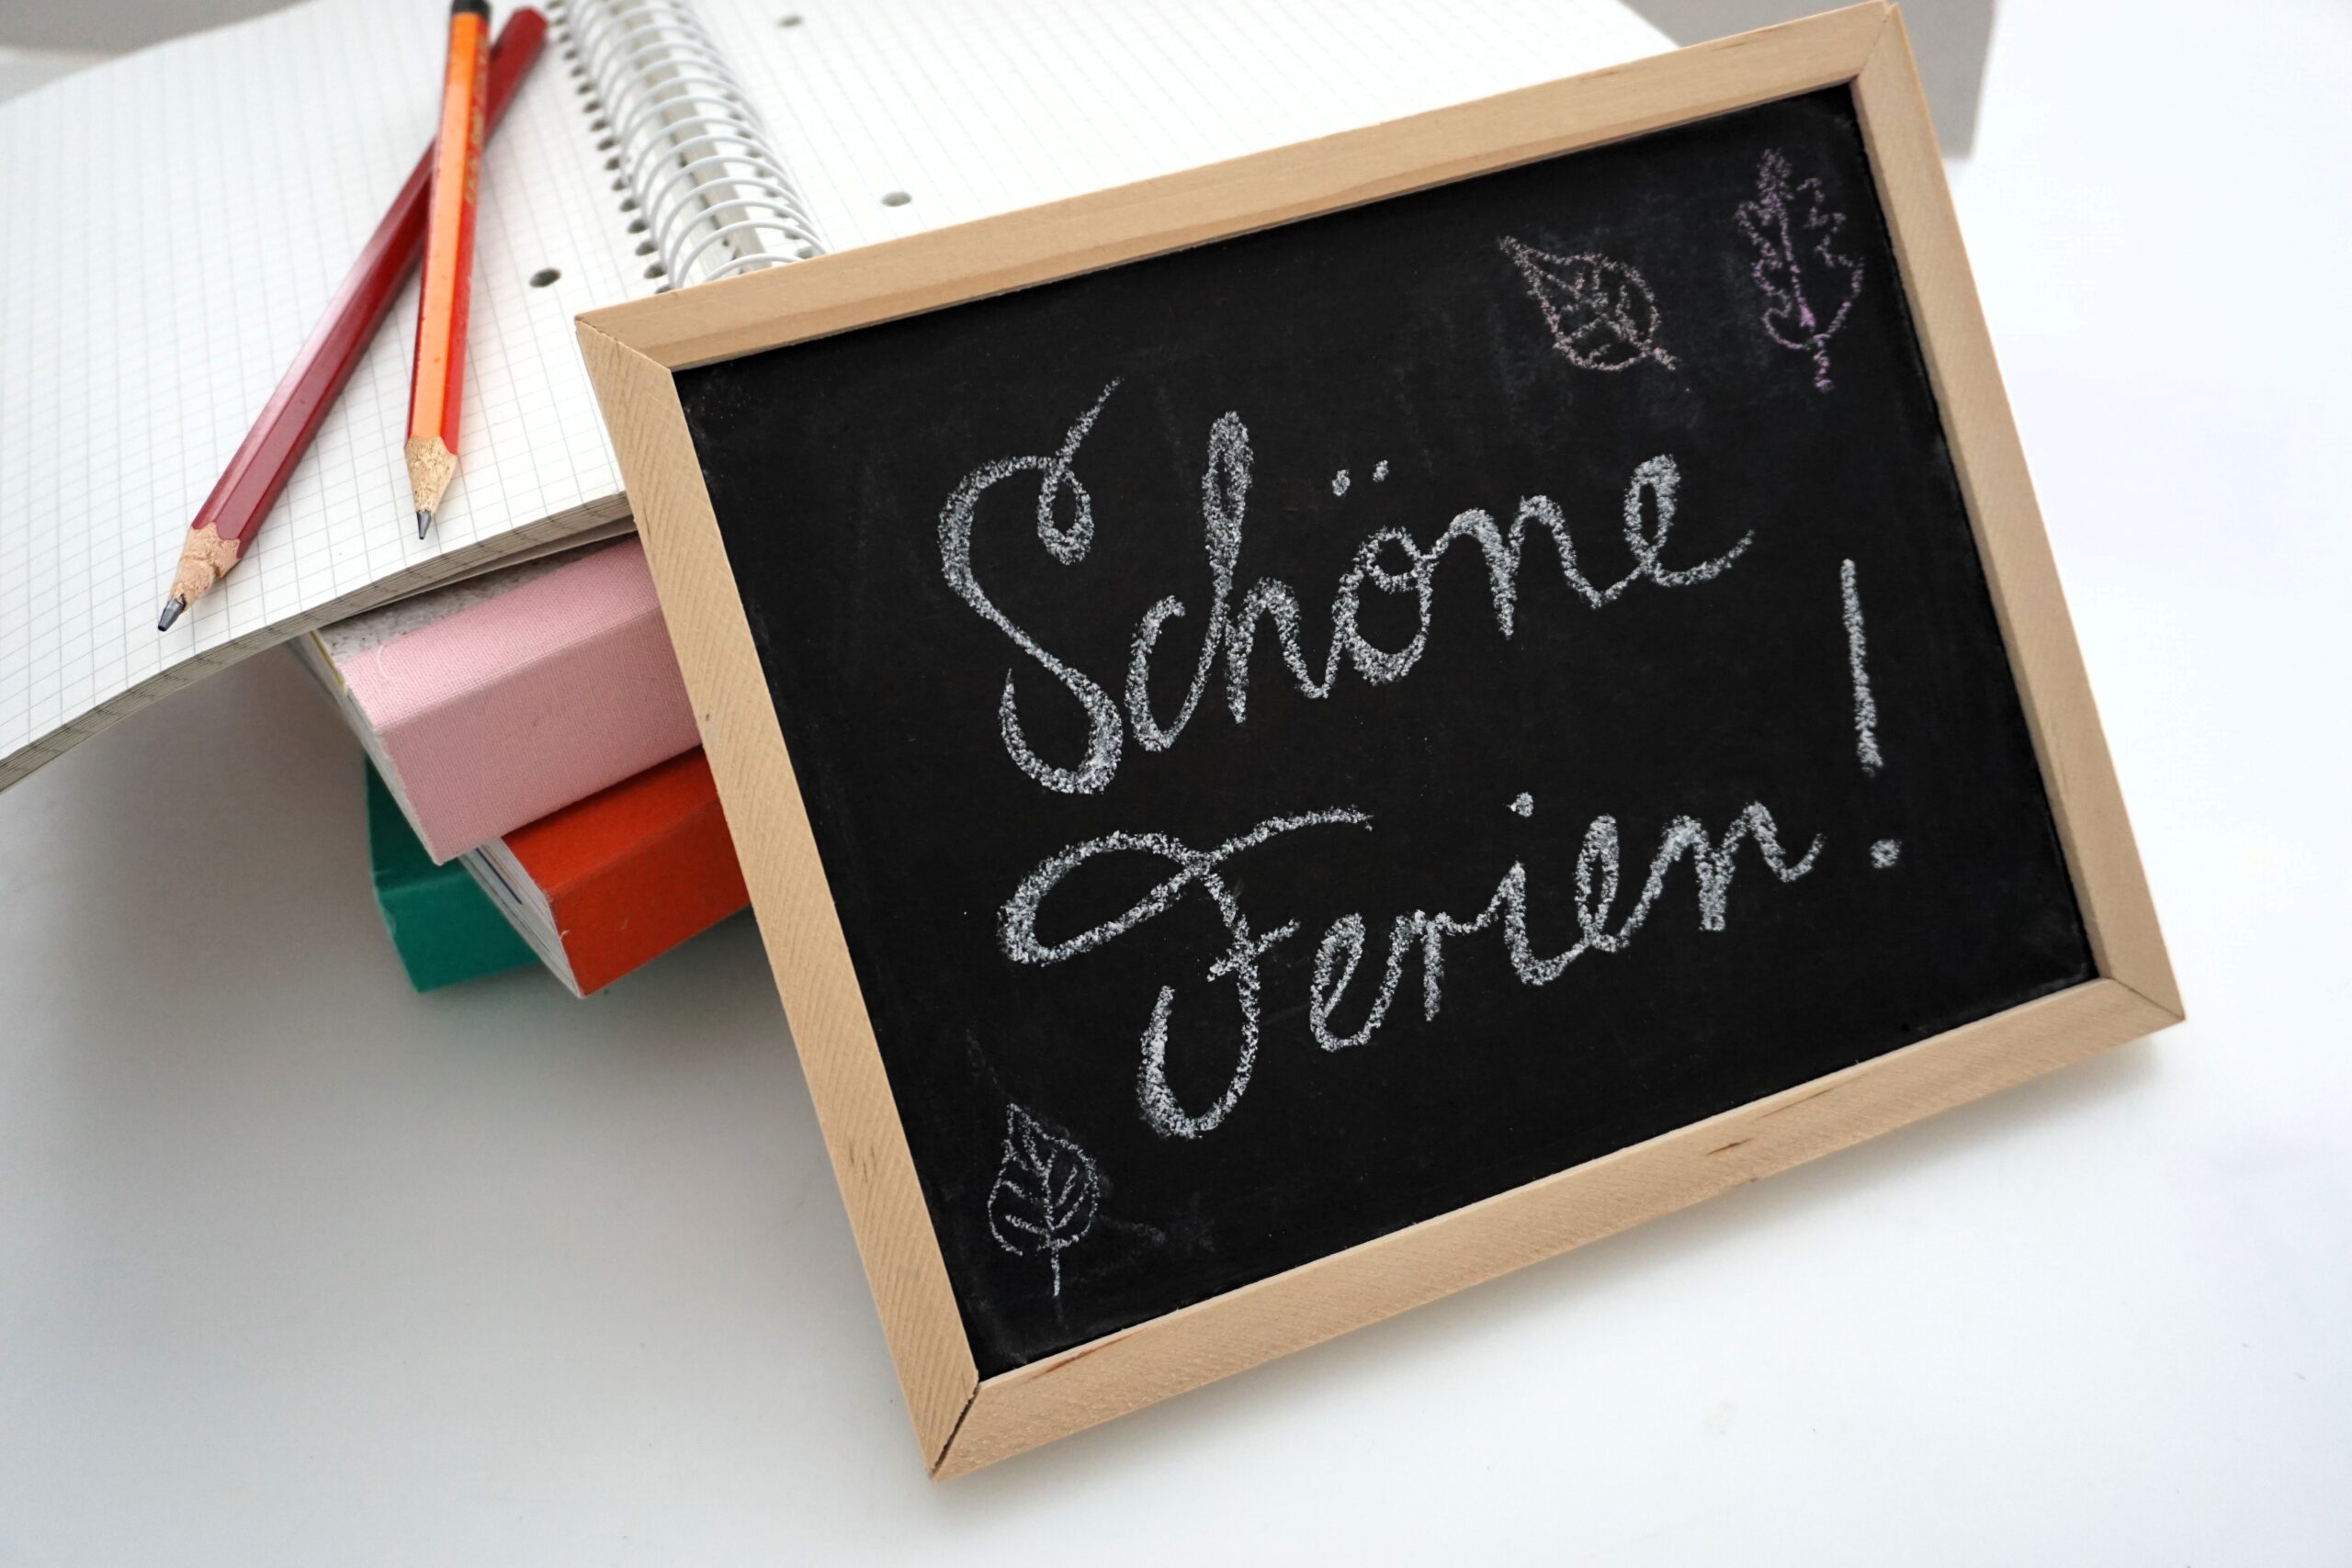 Schöne
Ferien!